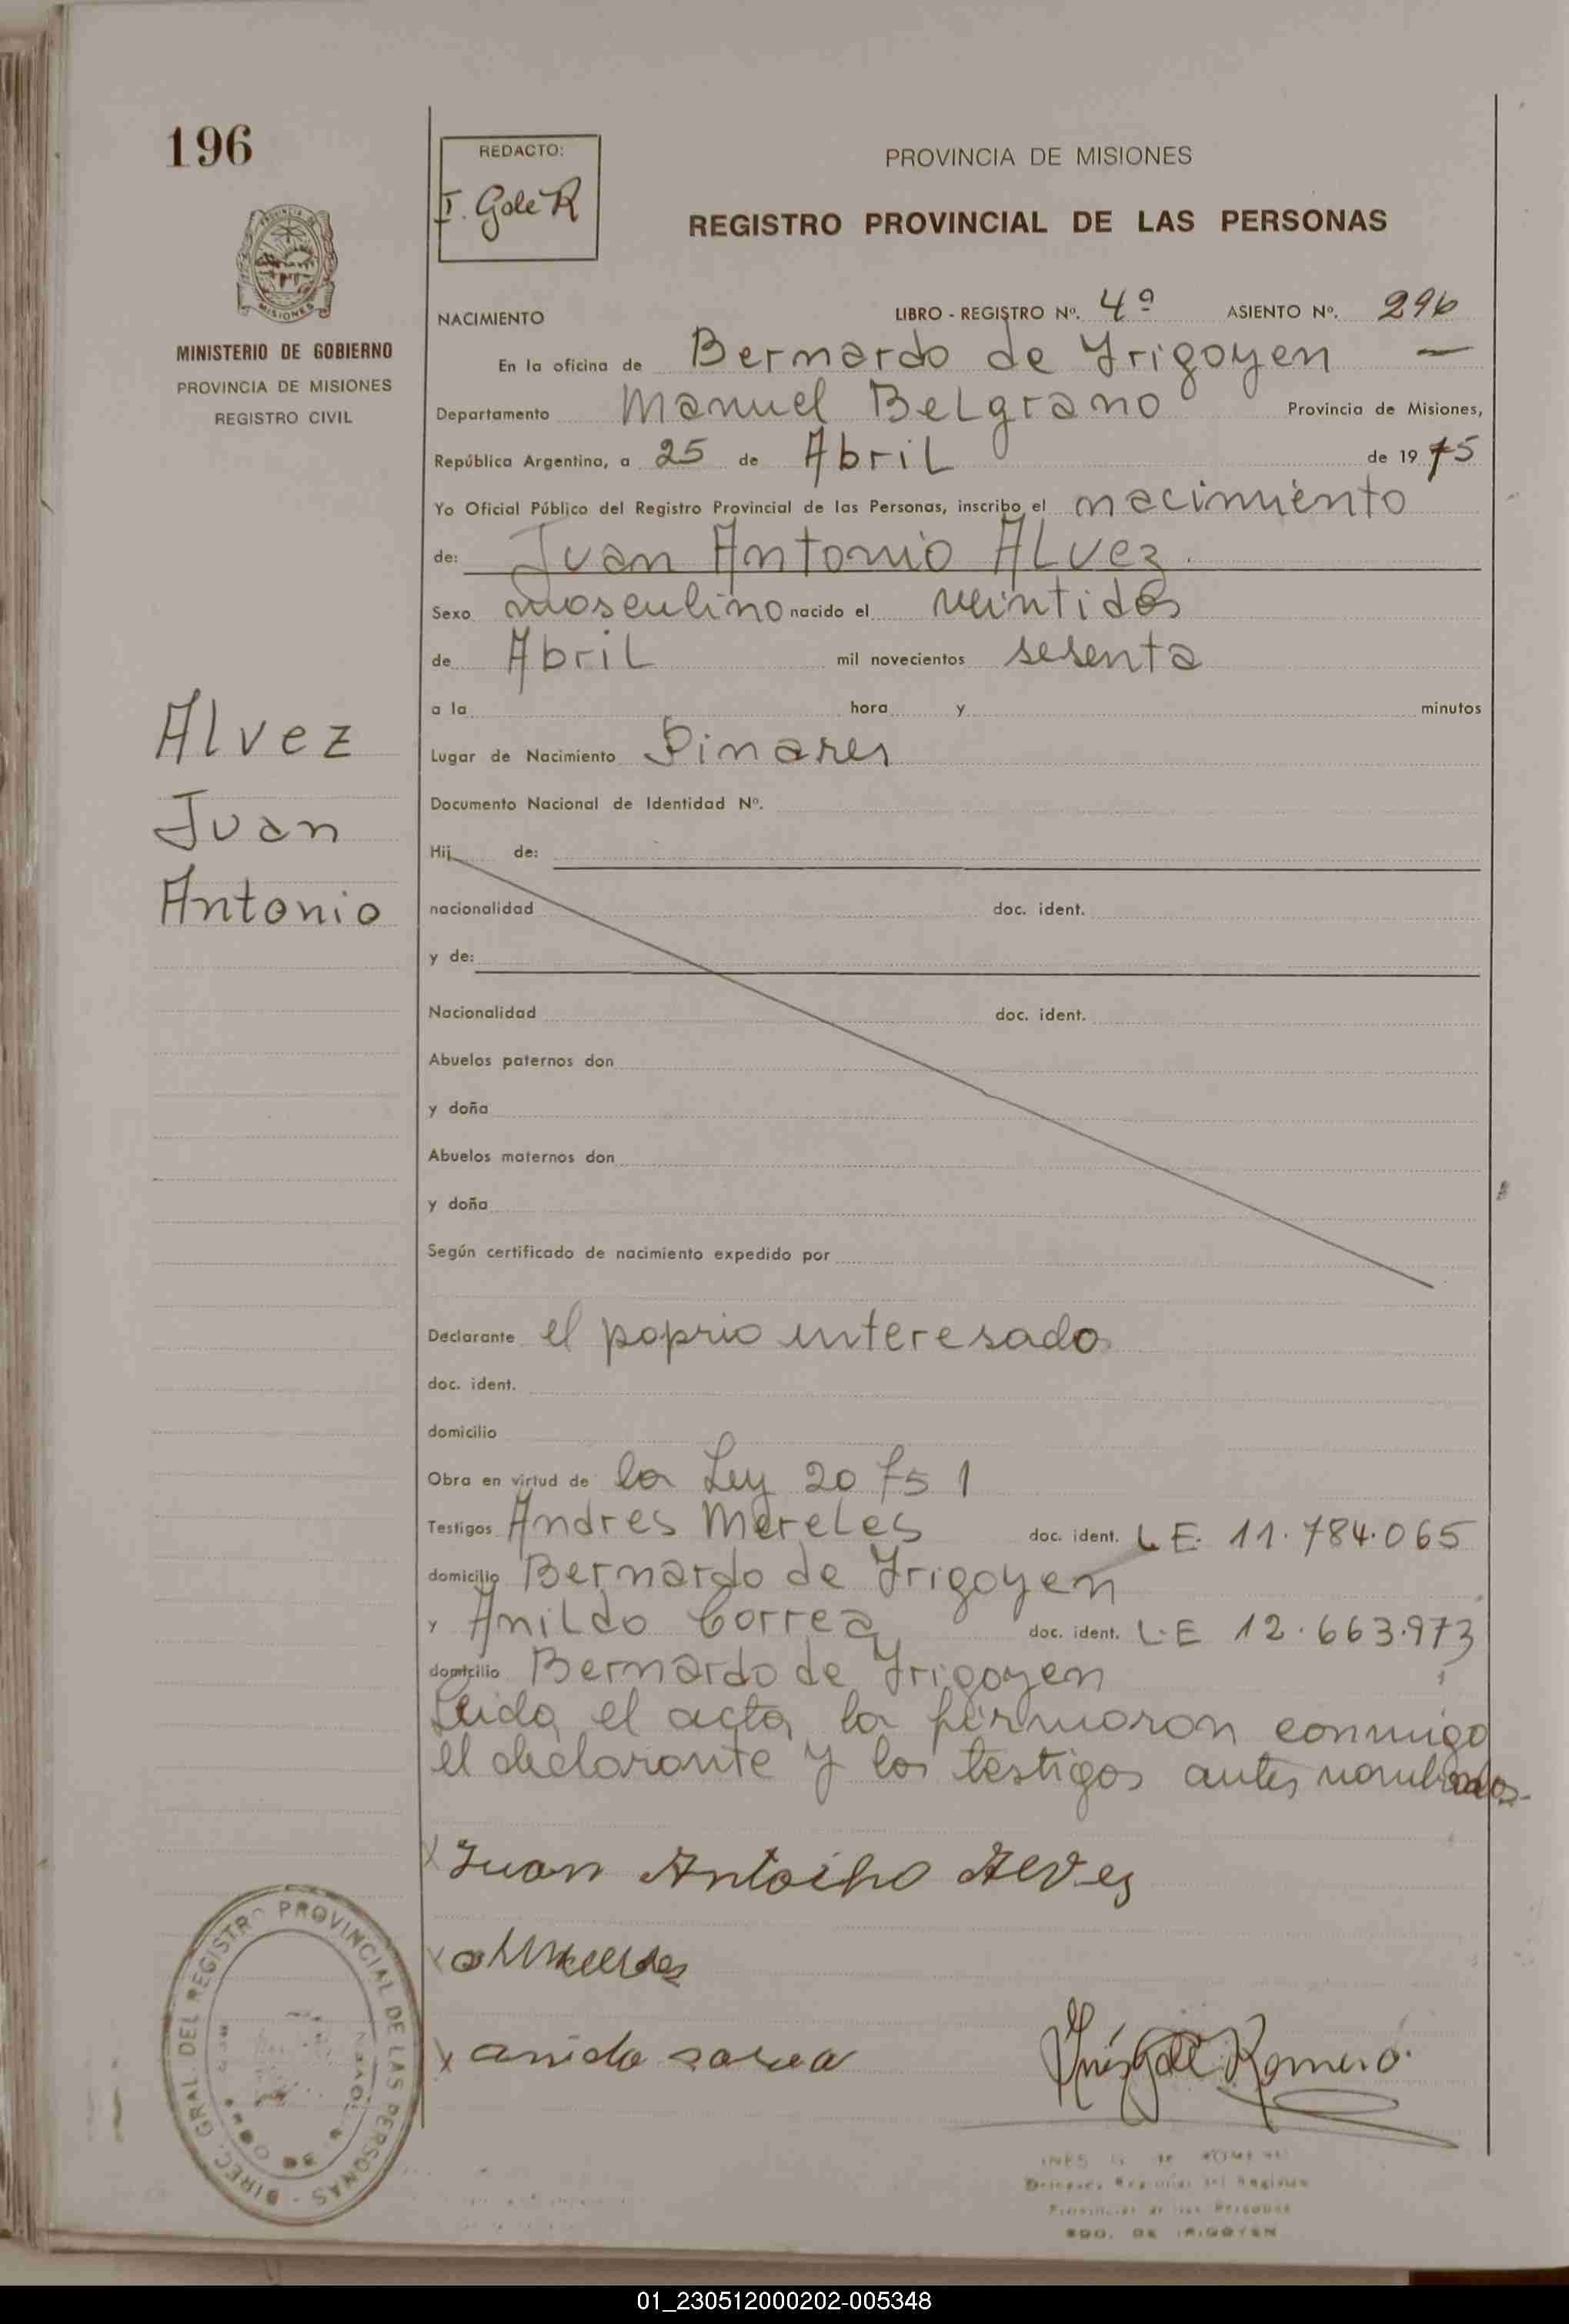 196
REDACTO:
I. Golé R
PROVINCIA DE MISIONES
REGISTRO PROVINCIAL DE LAS PERSONAS
MISIONES
MINISTERIO DE GOBIERNO
PROVINCIA DE MISIONES
REGISTRO CIVIL
NACIMIENTO LIBRO - REGISTRO Nº. 4º ASIENTO Nº. 296
En la oficina de Bernardo de Yrigoyen —
Departamento Manuel Belgrano Provincia de Misiones,
República Argentina, a 25 de Abril de 1975
Yo Oficial Público del Registro Provincial de las Personas, inscribo el nacimiento
de: Juan Antonio Alvez.
Sexo masculino nacido el veintidos
de Abril mil novecientos sesenta
a la hora y minutos
Lugar de Nacimiento Pinares
Documento Nacional de Identidad Nº.
Alvez
Juan
Antonio
Hij de:
nacionalidad doc. ident.
y de:
Nacionalidad doc. ident.
Abuelos paternos don
y doña
Abuelos maternos don
y doña
Según certificado de nacimiento expedido por
Declarante el poprio interesado
doc. ident.
domicilio
Obra en virtud de la Ley 20751
Testigos Andres Mereles doc. ident. L E. 11.784.065
domicilio Bernardo de Yrigoyen
y Anildo Correa doc. ident. L.E 12.663.973
domicilio Bernardo de Yrigoyen
Leida el acta la firmaron conmigo
el declarante y los testigos antes nombrados.
x Juan Antoino Alves
x
x
Romero
DIREC. GRAL. DEL REGISTRO PROVINCIAL DE LAS PERSONAS
INES G. DE ROMERO
BDO. DE IRIGOYEN
01_230512000202-005348